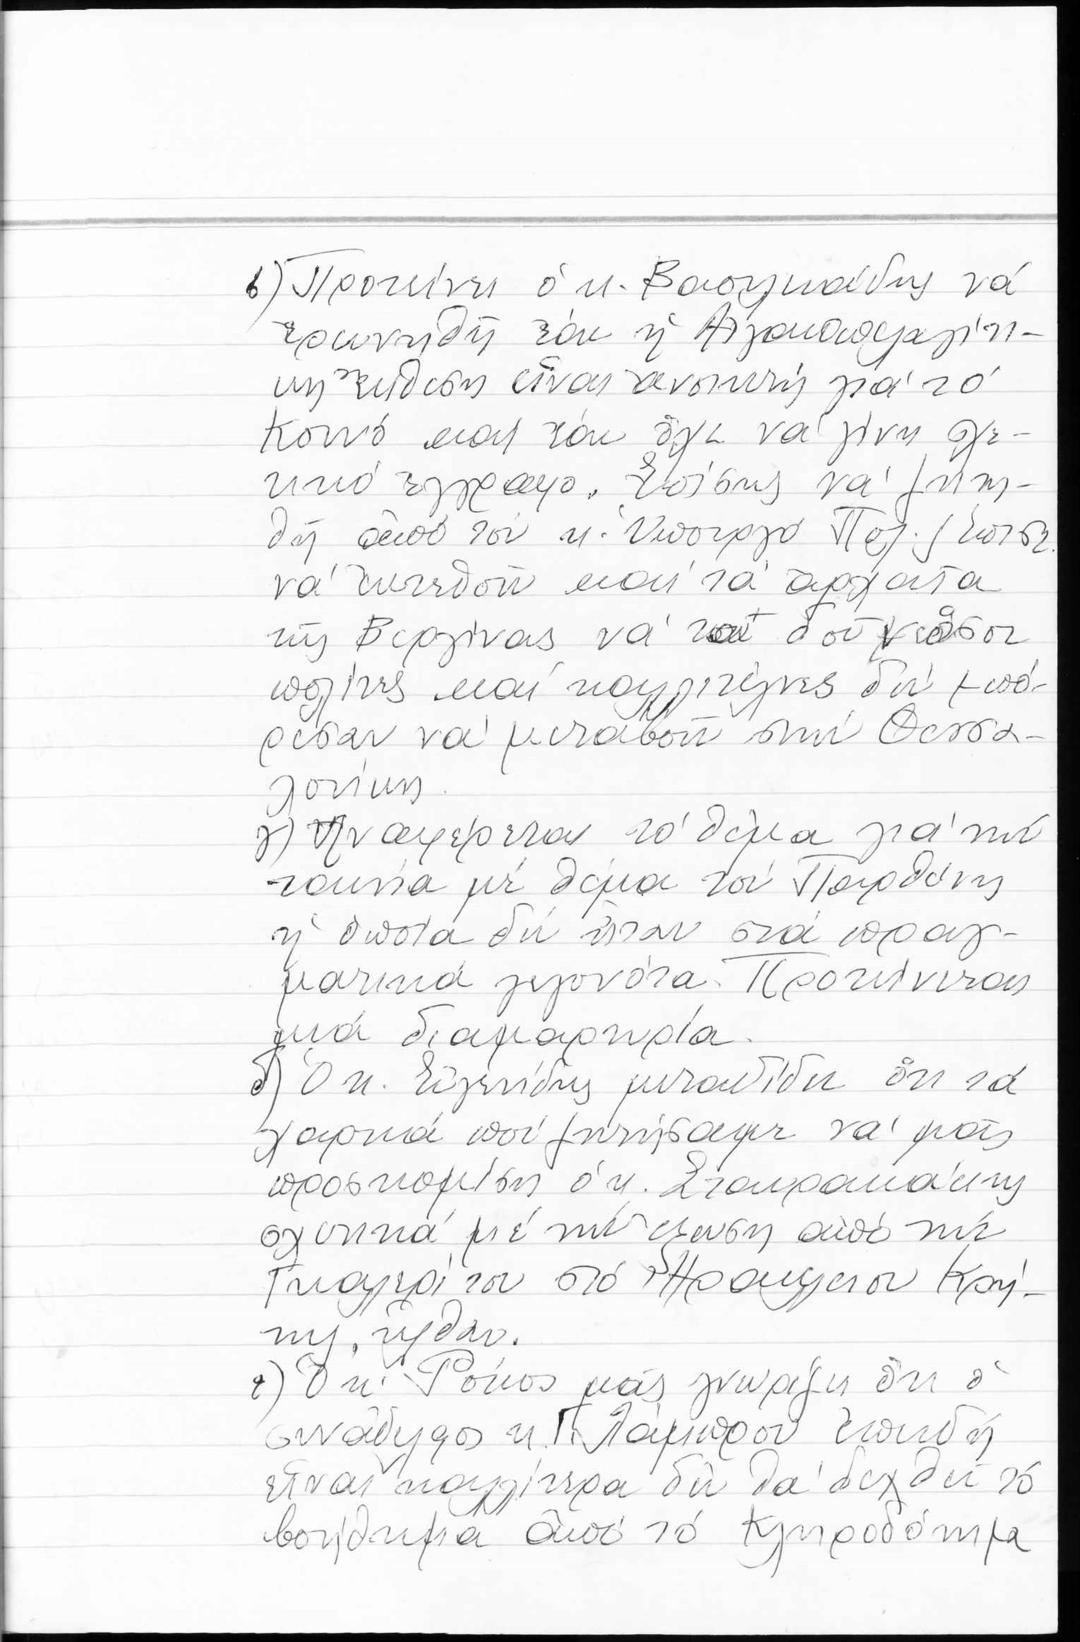 β) Προτείνει ὁ κ. Βασιλειάδης νά
ἐρωτηθῆ ἐάν ἡ Αἰγαιοπελαγίτι-
κη ἔκθεση εἶναι ἀνοικτή γιά τό
Κοινό καί ἐάν ὄχι νά γίνη σχε-
τικό ἔγγραφο. Ἐπίσης νά ζητη-
θῆ ἀπό τόν κ. Ὑπουργό Πολ. / Ἐπιστ.
νά ἐκτεθοῦν καί τά ἀρχαῖα
τῆς Βεργίνας νά τά δοῦν ὅσοι
πολίτες καί καλλιτέχνες δέν μπό-
ρεσαν νά μεταβοῦν στήν Θεσσα-
λονίκη.
γ) Ἀναφέρεται τό θέμα γιά τήν
ταινία μέ θέμα τόν Παρθένη
ἡ ὁποία δέν ἦταν στά πραγ-
ματικά γεγονότα. Προτείνεται
μιά διαμαρτυρία.
δ) Ὁ κ. Εὐγενίδης μεταδίδει ὅτι τά
χαρτιά πού ζητήσαμε νά μᾶς
προσκομίση ὁ κ. Σταυρακάκης
σχετικά μέ τήν ἔξωση ἀπό τήν
Γκαλερί του στό Ἡράκλειον Κρή-
της, ἦλθαν.
ε) Ὁ κ. Ρόκος μᾶς γνωρίζει ὅτι ὁ
συνάδελφος κ. Γ. Λάμπρου ἐπειδή
εἶναι καλλίτερα δέν θά δεχθεῖ τό
βοήθημα ἀπό τό Κληροδότημα